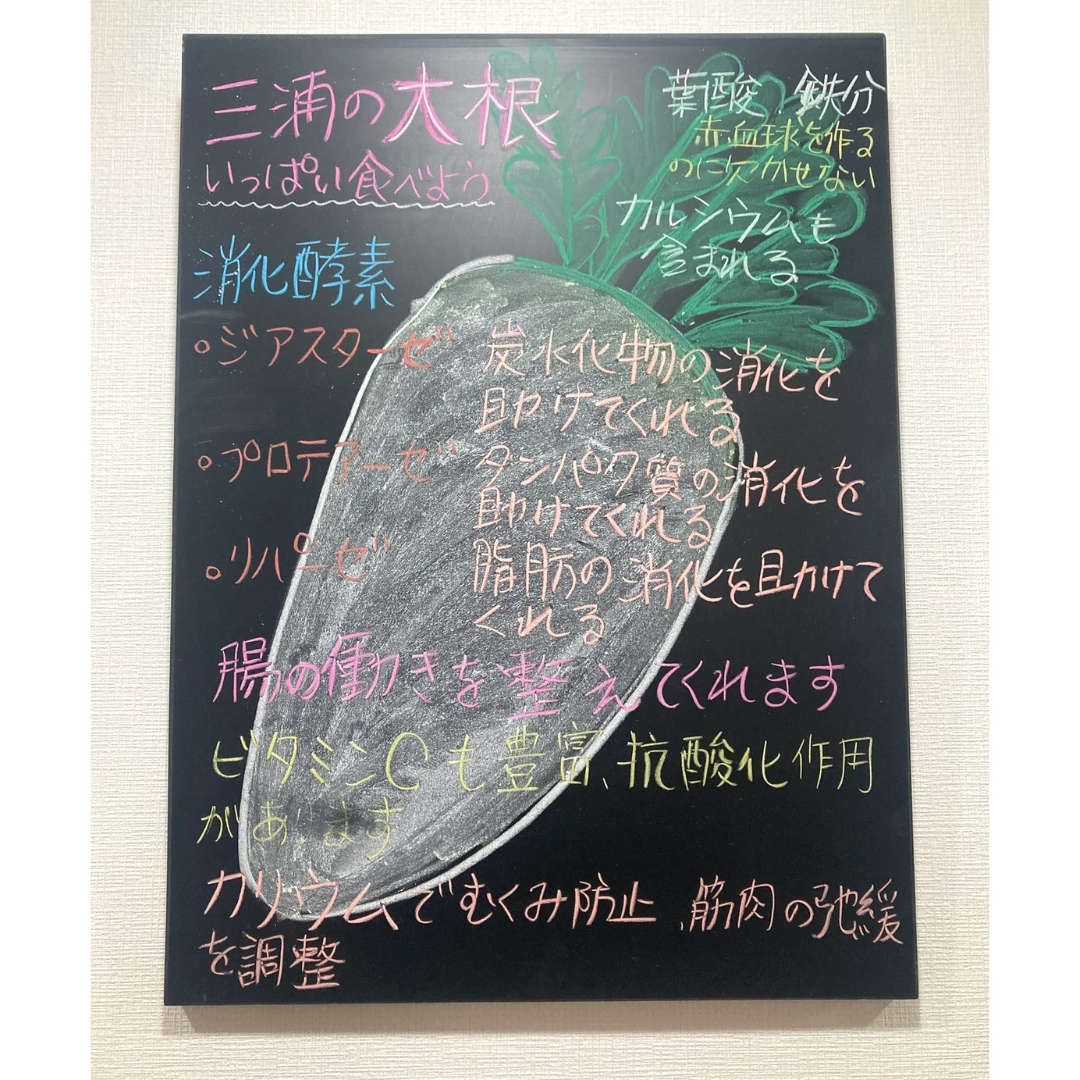 三浦の大根
いっぱい食べよう
葉酸 鉄分
赤血球を作る
のに欠かせない
カルシウムも
含まれる
消化酵素
・ジアスターゼ 炭水化物の消化を
助けてくれる
・プロテアーゼ タンパク質の消化を
助けてくれる
・リパーゼ 脂肪の消化を助けて
くれる
腸の働きを整えてくれます
ビタミンCも豊富、抗酸化作用
があります
カリウムでむくみ防止、筋肉の弛緩
を調整